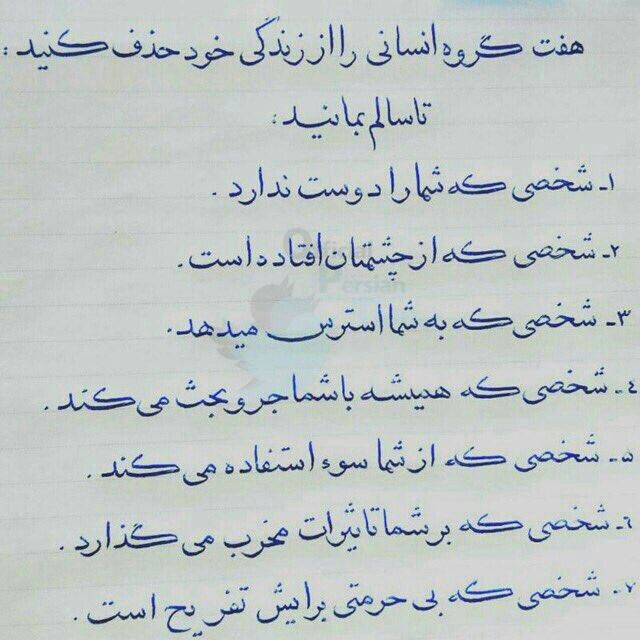 هفت گروه انسانی را از زندگی خود حذف کنید :
تا سالم بمانید :
۱ـ شخصی که شما را دوست ندارد .
۲ـ شخصی که از چشمتان افتاده است.
۳ـ شخصی که به شما استرس میدهد.
٤ـ شخصی که همیشه با شما جر و بحث می کند .
۵ـ شخصی که از شما سوء استفاده می کند .
٦ـ شخصی که بر شما تاثیرات مخرب می گذارد .
۷ـ شخصی که بی حرمتی برایش تفریح است .
Persian